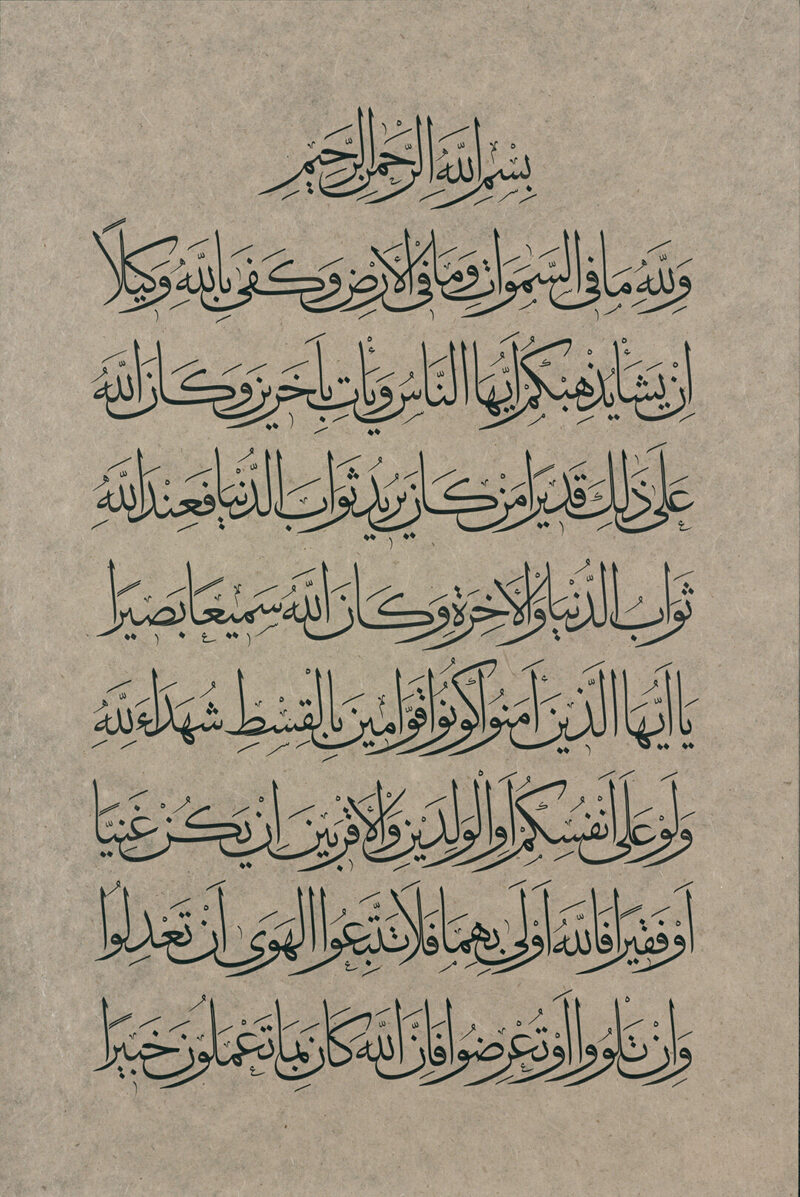 بِسْمِ اللَّهِ الرَّحْمٰنِ الرَّحِيمِ
وَلِلَّهِ مَا فِى السَّمٰوَاتِ وَمَا فِى الْاَرْضِ وَكَفٰى بِاللَّهِ وَكِيلًا
اِنْ يَشَأْ يُذْهِبْكُمْ اَيُّهَا النَّاسُ وَيَأْتِ بِاٰخَرِينَ وَكَانَ اللَّهُ
عَلٰى ذٰلِكَ قَدِيرًا مَنْ كَانَ يُرِيدُ ثَوَابَ الدُّنْيَا فَعِنْدَ اللَّهِ
ثَوَابُ الدُّنْيَا وَالْاٰخِرَةِ وَكَانَ اللَّهُ سَمِيعًا بَصِيرًا
يَا اَيُّهَا الَّذِينَ اٰمَنُوا كُونُوا قَوَّامِينَ بِالْقِسْطِ شُهَدَاءَ لِلَّهِ
وَلَوْ عَلٰى اَنْفُسِكُمْ اَوِ الْوَالِدَيْنِ وَالْاَقْرَبِينَ اِنْ يَكُنْ غَنِيًّا
اَوْ فَقِيرًا فَاللَّهُ اَوْلٰى بِهِمَا فَلَا تَتَّبِعُوا الْهَوٰى اَنْ تَعْدِلُوا
وَاِنْ تَلْوُوا اَوْ تُعْرِضُوا فَاِنَّ اللَّهَ كَانَ بِمَا تَعْمَلُونَ خَبِيرًا